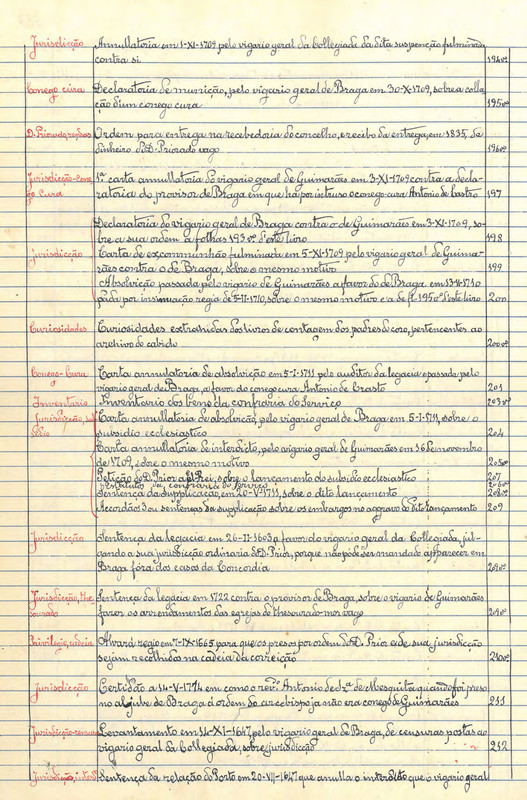 Jurisdicção Annullatoria em 1-XI-1709 pelo vigario geral da Collegiada da dita suspenção fulminada
contra si 194 vº
Conego cura Declaratoria de munição, pelo vigario geral de Braga em 30-X-1709, sobre a colla-
ção d'um conego cura 195 vº
D. Priorado, Ordem para entrega na recebedoria do concelho, e recibo da entrega, em 1835, de
dinheiro do D. Priorado vago 196 vº
Jurisdicção-Cone- 1ª carta annullatoria do vigario geral de Guimarães em 3-XI-1709 contra a decla-
go Cura ratoria do provisor de Braga em que há por intruso o conego-cura Antonio de Castro 197
Declaratoria do vigario geral de Braga contra o de Guimarães em 3-XI-1709, so-
bre a sua ordem a folhas 193 vº d'este livro 198
Jurisdicção Carta de excommunhão fulminada em 5-XI-1709 pelo vigario geral de Guima-
rães contra o de Braga, sobre o mesmo motivo 199
Absolvição passada pelo vigario de Guimarães a favor do de Braga, em 13-II-1710
dada por insinuação regia de 5-II-1710, sobre o mesmo motivo e a de fl. 195 vº d'este livro 200
Curiosidades Curiosidades extrahidas dos livros de contagem dos padres do coro, pertencentes ao
archivo do cabido 200 vº
Conego-Cura Carta annullatoria de absolvição em 5-I-1711, pelo auditor da legacia e passada pelo
vigario geral de Braga, a favor do conego cura Antonio de Crasto 201
Inventario Inventario dos bens da confraria do Serviço 203 vº
Jurisdicção, sub-
sidio Carta annullatoria de absolvição, pelo vigario geral de Braga em 5-I-1711, sobre o
subsidio ecclesiastico 204
Carta annullatoria de interdicto, pelo vigario geral de Guimarães em 16 de novembro
de 1709, sobre o mesmo motivo 205 vº
Petição do D. Prior a El-Rei, sobre o lançamento do subsidio ecclesiastico 207
Estatutos da confraria do Serviço 206 vº
Sentença da Supplicação, em 20-V-1711, sobre o dito lançamento 208 vº
Accordãos ou sentenças da supplicação sobre os embargos no aggravo do dito lançamento 209
Jurisdicção Sentença da legacia em 26-II-1603 a favor do vigario geral da Collegiada, jul-
gando a sua jurisdicção ordinaria do D. Prior, porque não póde ser mandado apparecer em
Braga fóra dos casos da Concordia 209 vº
Jurisdicção, the-
sourado Sentença da legacia em 1722 contra o provisor de Braga, sobre o vigario de Guimarães
fazer os arrendamentos das egrejas do thesourado-mor vago 209 vº
Privilegio, cadeia Alvará regio em 7-IX-1665 para que os presos por ordem do D. Prior e de sua jurisdicção
sejam recolhidos na cadeia da correição 210 vº
Jurisdicção Certidão a 14-V-1774 em como o revº. Antonio de de Mesquita quando foi preso
no aljube de Braga á ordem do arcebispo já não era conego de Guimarães 211
Jurisdicção- Levantamento em 14-XI-1647, pelo vigario geral de Braga, de censuras postas ao
vigario geral da Collegiada, sobre jurisdicção 212
Jurisdicção, Sentença da relação do Porto em 20-VII-1647 que anulla o interdicto que o vigario geral